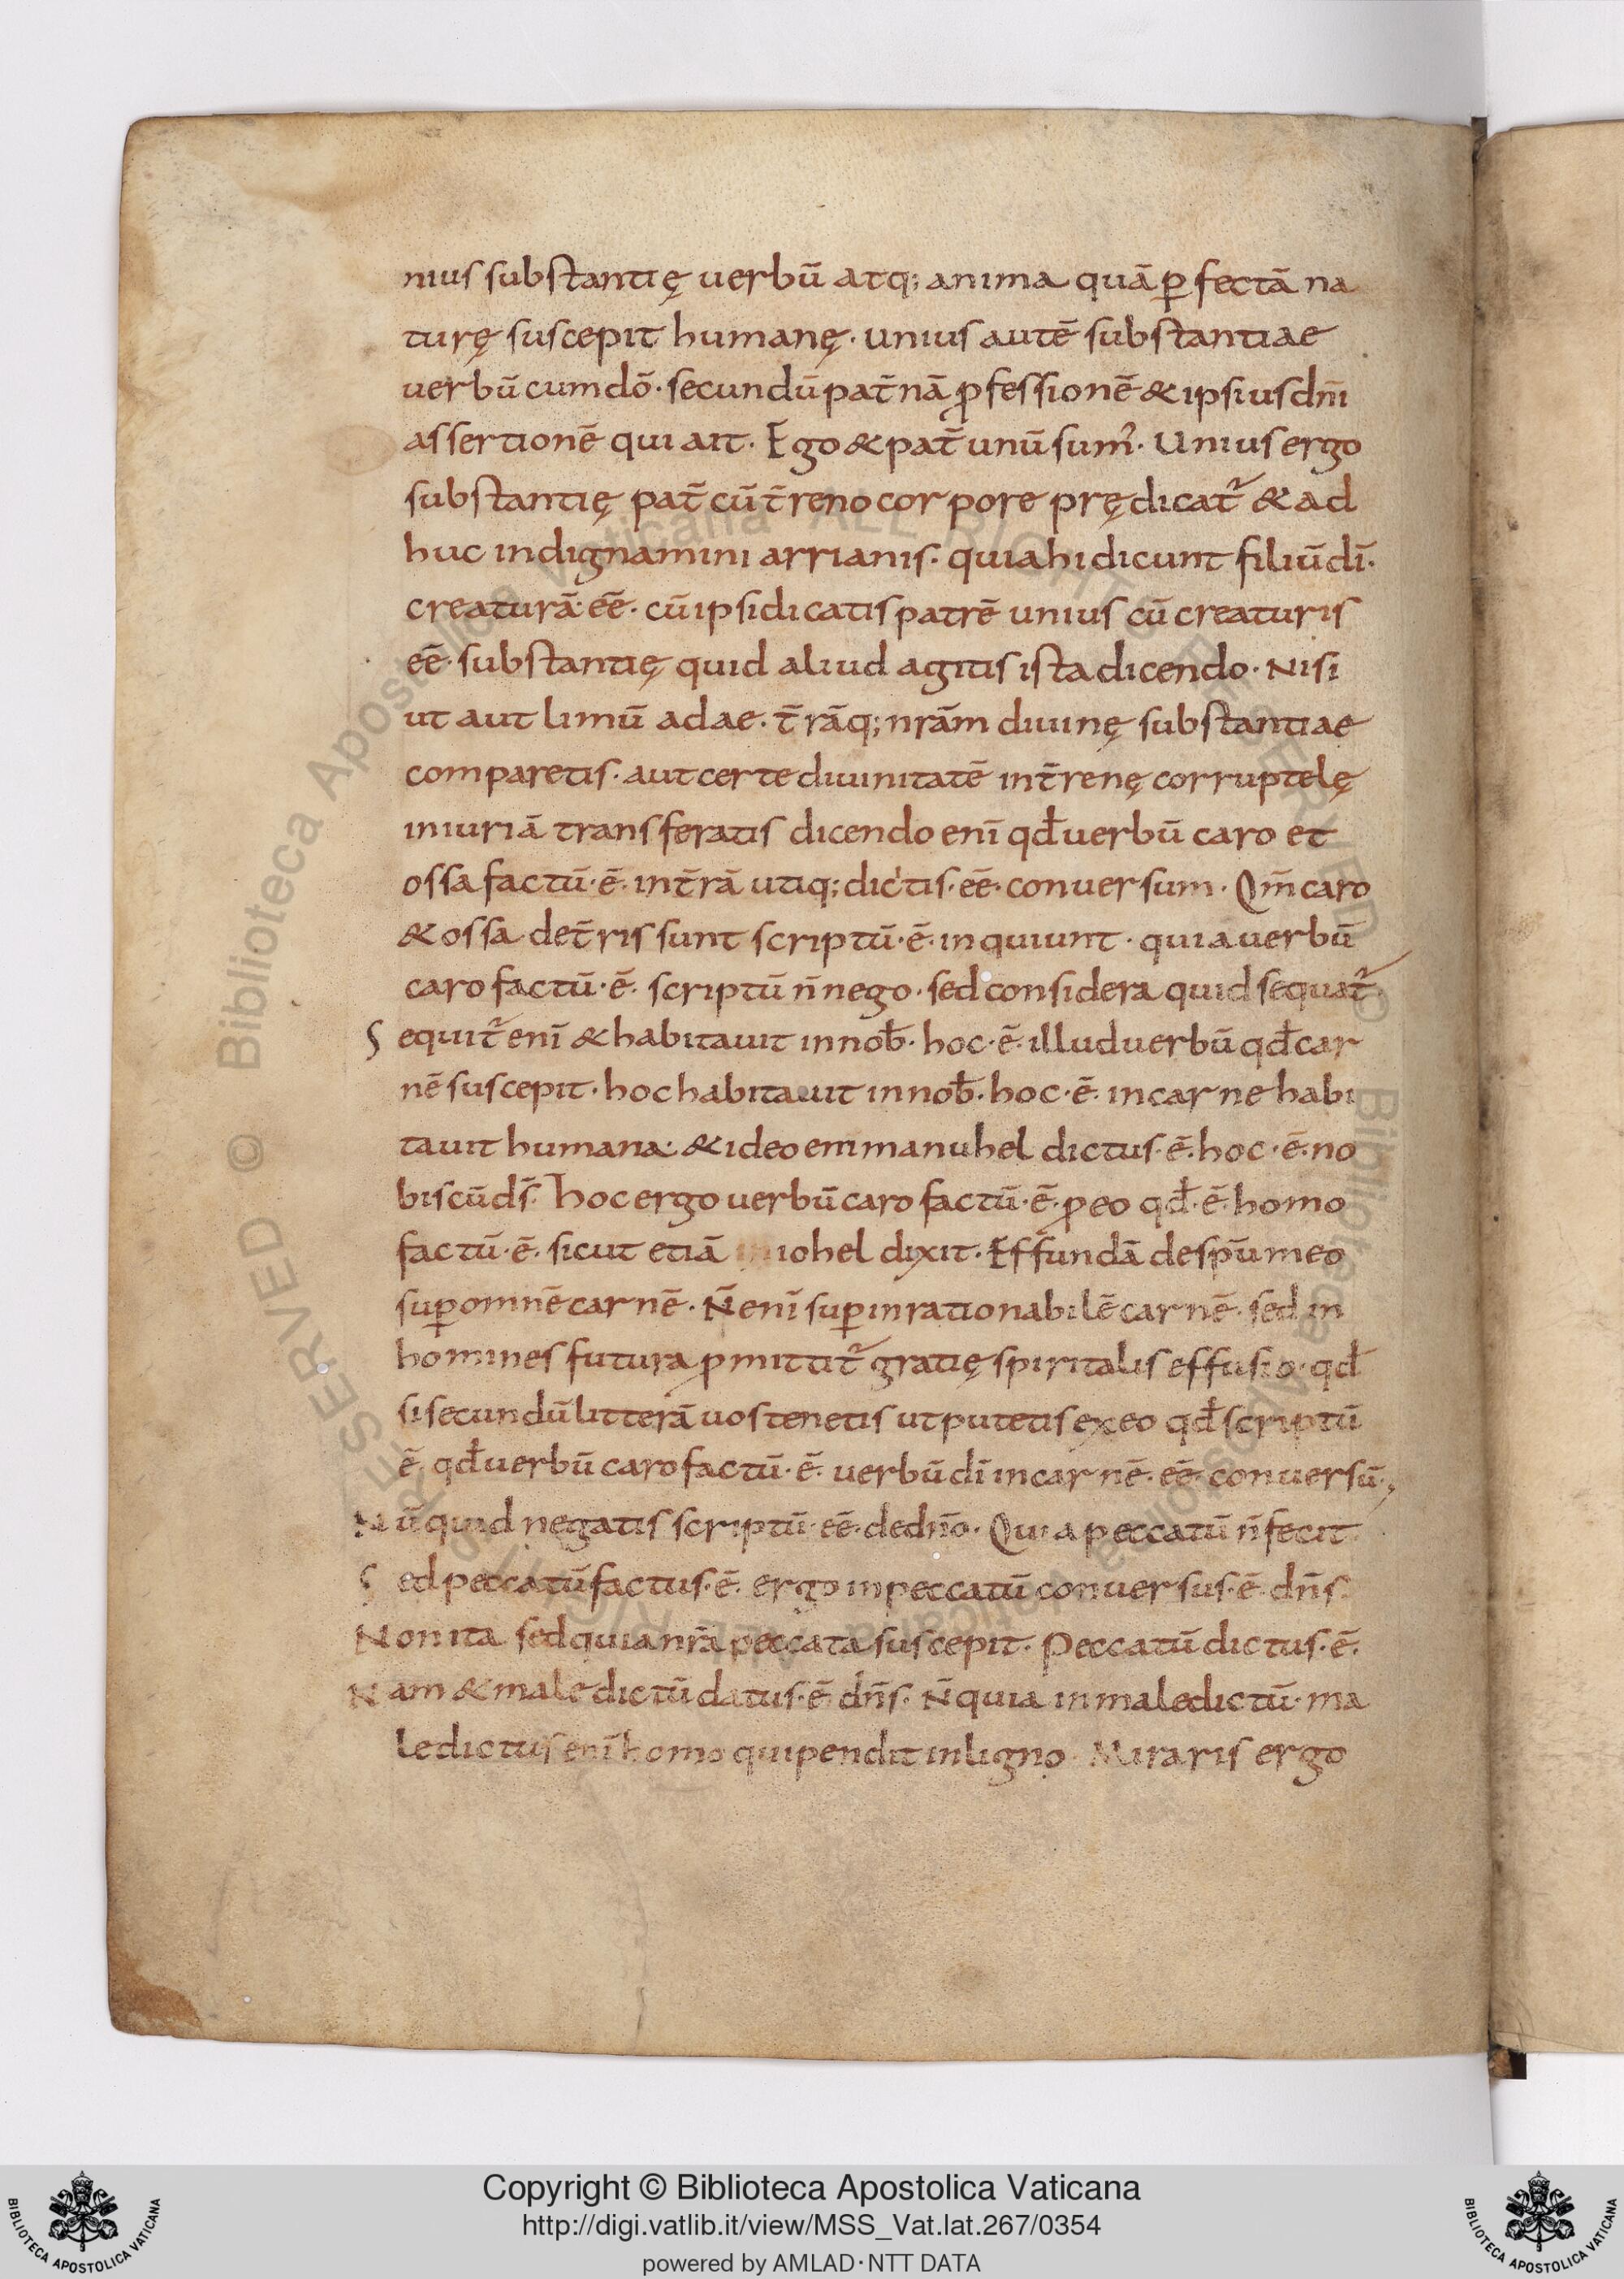 nius substantię uerbū atq; anima quā ꝑfectā na
turę suscepit humanę · unius autē substantiae
uerbū cum dō · secundū pat̄nā ꝓfessionē & ipsius dn̄i
assertionē qui ait · Ego & pat̄ unū sum᾿ · Unius ergo
substantię pat̄ cū t̄reno corpore prędicat᷑ & ad
huc indignamini arrianis · quia hi dicunt filiū dī ·
creaturā · eē · cū ipsi dicatis patrē unius cū creaturis
eē · substantię quid aliud agitis ista dicendo · Nisi
ut aut limū adae · t̄rāq; nrām diuinę substantiae
comparetis · aut certe diuinitatē in t̄renę corruptelę
iniuriā transferatis dicendo enī qđ uerbū caro et
ossa factū · ē · in t̄rā utiq; dicitis · eē · conuersum · Qm̄ caro
& ossa de t̄ris sunt scriptū · ē · inquiunt · quia uerbū
caro factū · ē · scriptū n̄ nego · sed considera quid sequat᷑
Sequit᷑ enī & habitauit in nob̄ · hoc · ē · illud uerbū qđ car
nē suscepit · hoc habitauit in nob̄ · hoc · ē · in carne habi
tauit humana · & ideo emmanuhel dictus · ē · hoc · ē · no
biscū ds̄ · hoc ergo uerbū caro factū · ē · ꝓ eo qđ · ē · homo
factū · ē · sicut etiā iohel dixit · Effundā de spū meo
suꝑ omnē carnē · N̄ enī suꝑ inrationabilē carnē · sed in
homines futura ꝓmittit᷑ gratię spiritalis effusio · qđ
si secundū litterā uos tenetis ut putetis ex eo qđ scriptū
ē · qđ uerbū caro factū · ē · uerbū dī in carnē · eē · conuersū ·,
Nūquid negatis scriptū · eē · de dn̄o · Quia peccatū n̄ fecit
Sed peccatū factus · ē · ergo in peccatū conuersus · ē · dn̄s
Non ita sed quia nrā peccata suscepit · Peccatū dictus · ē ·
Nam & maledictū datus · ē · dn̄s · N̄ quia in maledictū · ma
ledictus enī homo qui pendit in ligno · Miraris ergo
Copyright © Biblioteca Apostolica Vaticana
http://digi.vatlib.it/view/MSS_Vat.lat.267/0354
powered by AMLAD · NTT DATA
BIBLIOTECA APOSTOLICA VATICANA
BIBLIOTECA APOSTOLICA VATICANA